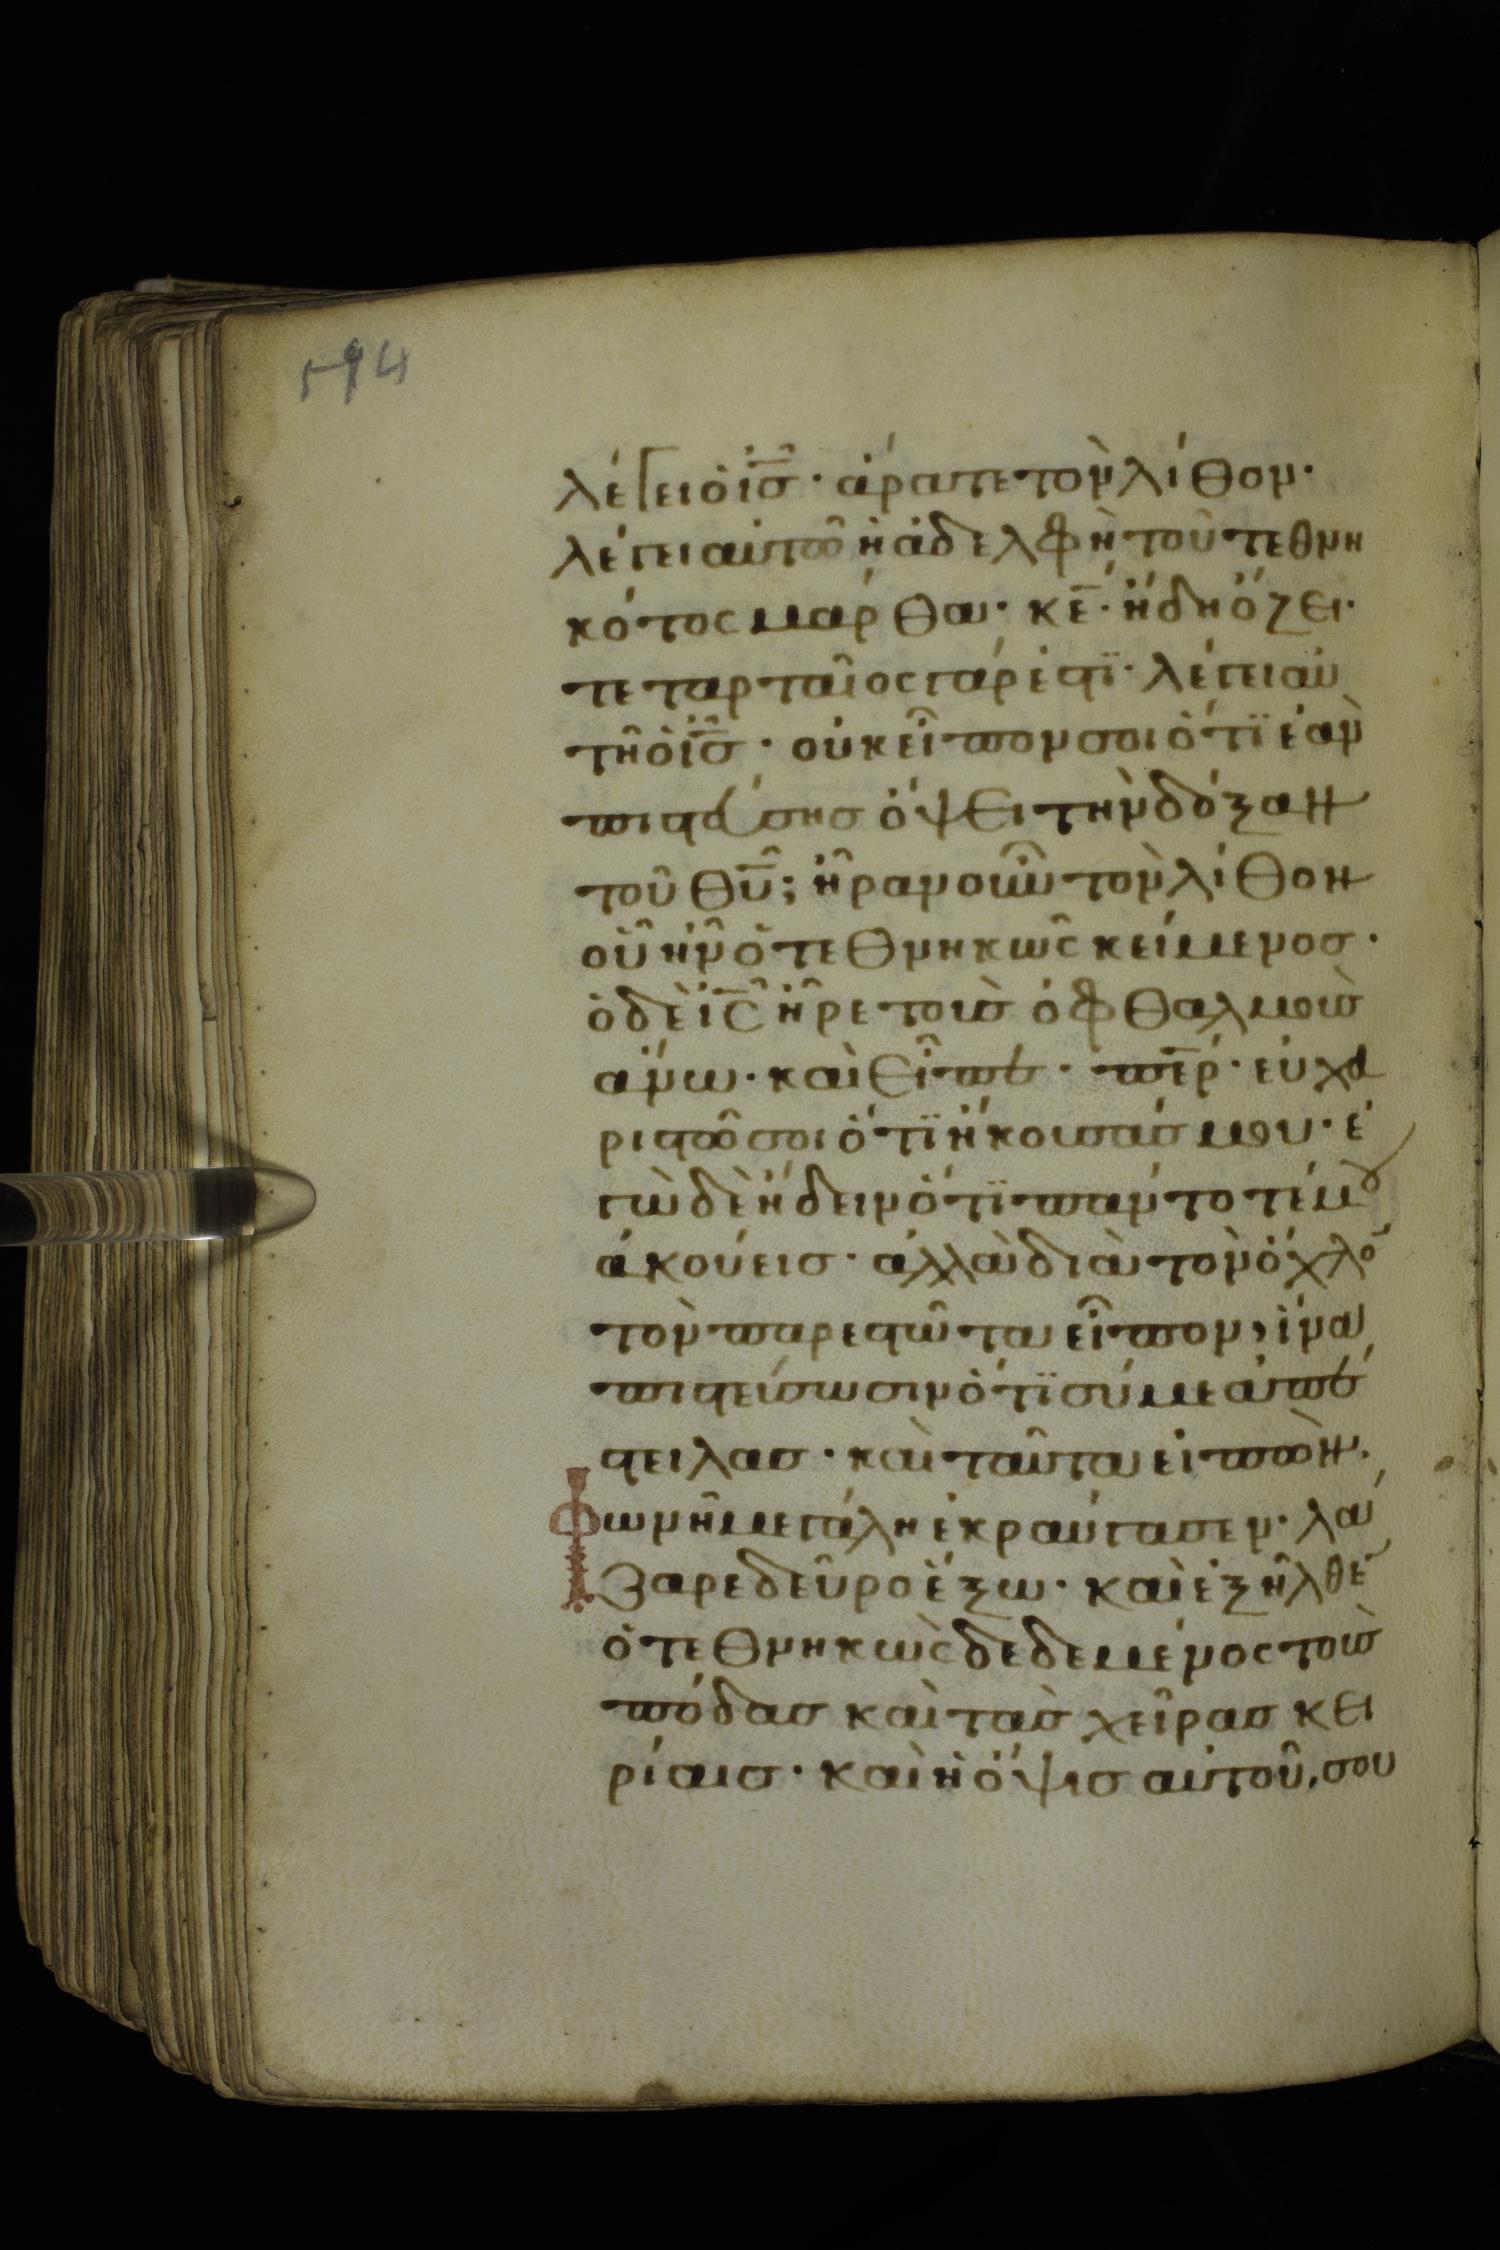 594
λέγει ὁ ἰ̅ς̅· ἄρατε τὸν λίθον·
λέγει αὐτῶ ἡ ἀδελφὴ τοῦ τεθνη
κότος μάρθα· κ̅ε̅· ἤδη ὄζει·
τεταρταῖος γάρ ἐστϊ· λέγει αὐ
τῆ ὁ ἰ̅ς̅· οὐκ εἶπον σοι ὅτϊ ἐὰν
πιστεύσης ὄψει τὴν δόξαν
τοῦ θ̅υ̅; ἦραν οὖν τὸν λίθον
οὗ ἦν ὁ τεθνηκῶς κείμενος·
ὁ δὲ ἰ̅ς̅ ἦρε τοὺς ὀφθαλμοὺς
ἄνω· καὶ εἶπε· π̅ε̅ρ· εὐχα
ριστῶ σοι ὅτϊ ἤκουσάς μου· ἐ
γὼ δὲ ἤδειν ὅτϊ πάντοτέ μου
ἀκούεις· ἀλλὰ διὰ τὸν ὄχλο
τὸν παρεστῶτα εἶπον, ἵνα
πιστεύσωσιν ὅτϊ σύ με ἀπέ
στειλας· καὶ ταῦτα εἰπὼν·
φωνῆ μεγάλη ἐκραύγασεν· λά
ζαρε δεῦρο ἔξω· καὶ ἐξῆλθε
ὁ τεθνηκὼς δεδεμένος τοὺς
πόδας καὶ τὰς χεῖρας κει
ρίαις· καὶ ἡ ὄψις αὐτοῦ, σου